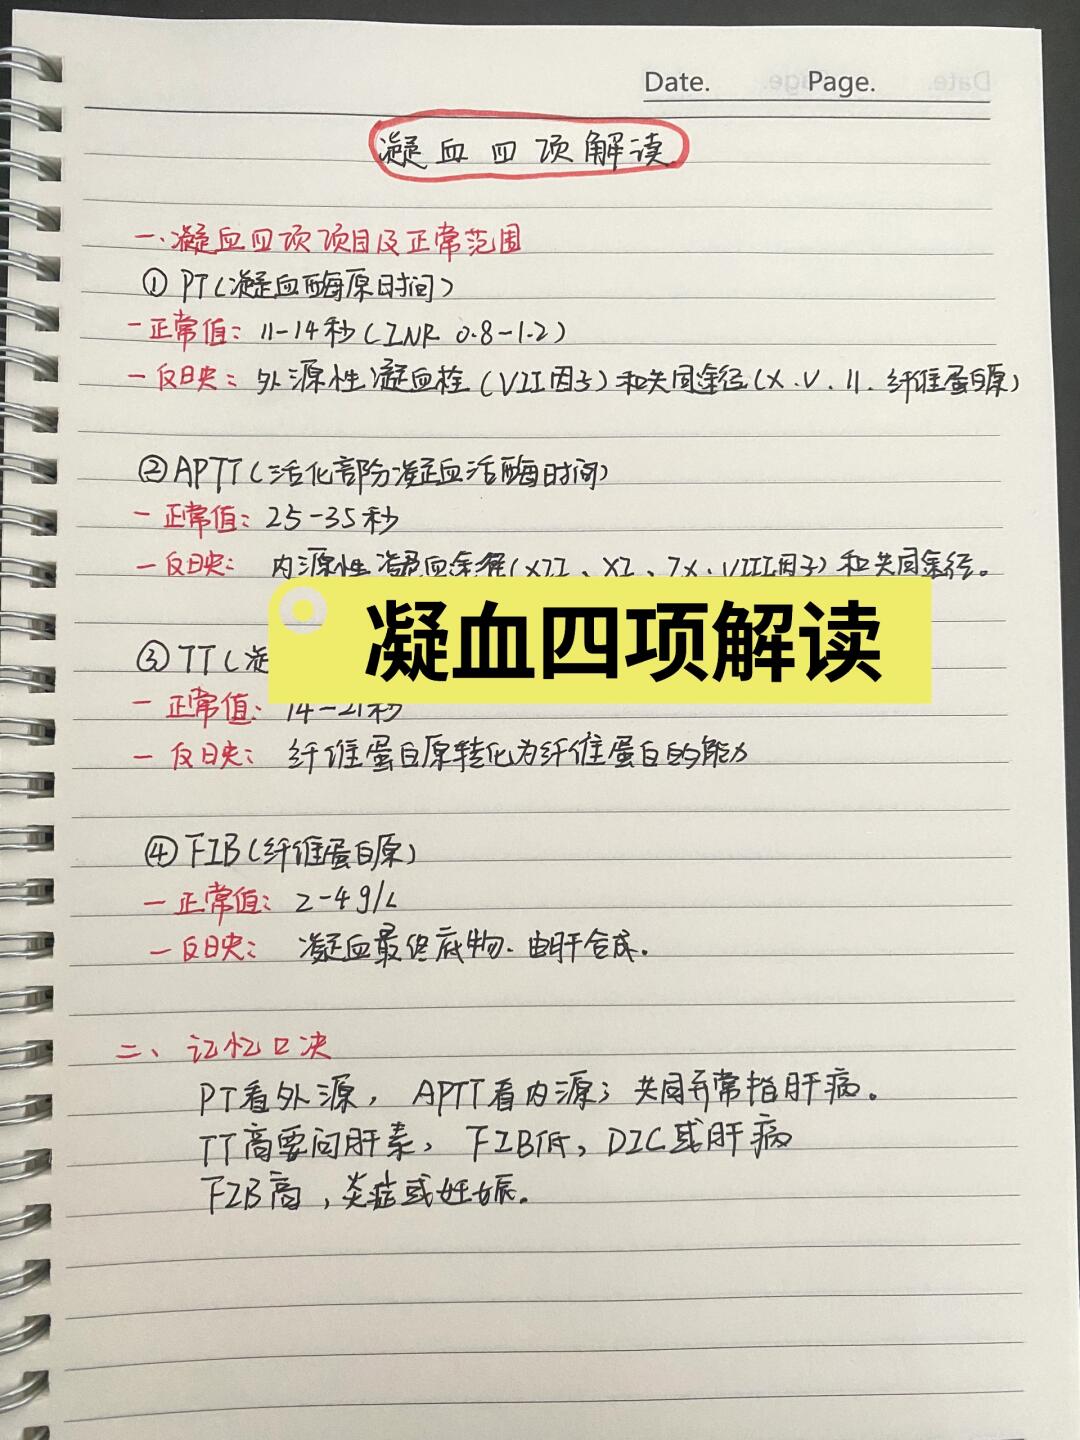 Date. Page.
凝血四项解读
一.凝血四项项目及正常范围
① PT(凝血酶原时间)
一正常值: 11-14秒(INR 0.8-1.2)
一反映: 外源性凝血栓(VII因子)和共同途径(X.V.II.纤维蛋白原)
②APTT(活化部分凝血活酶时间)
一正常值: 25-35秒
一反映: 内源性凝血途径(XII、XI、IX、VIII因子)和共同途径。
凝血四项解读
③TT(凝
一正常值: 14-21秒
一反映: 纤维蛋白原转化为纤维蛋白的能力
④FIB(纤维蛋白原)
一正常值: 2-4g/L
一反映: 凝血最终底物.由肝合成.
二、记忆口决
PT看外源, APTT看内源; 共同异常指肝病。
TT高要问肝素, FIB低, DIC或肝病
FIB高,炎症或妊娠。